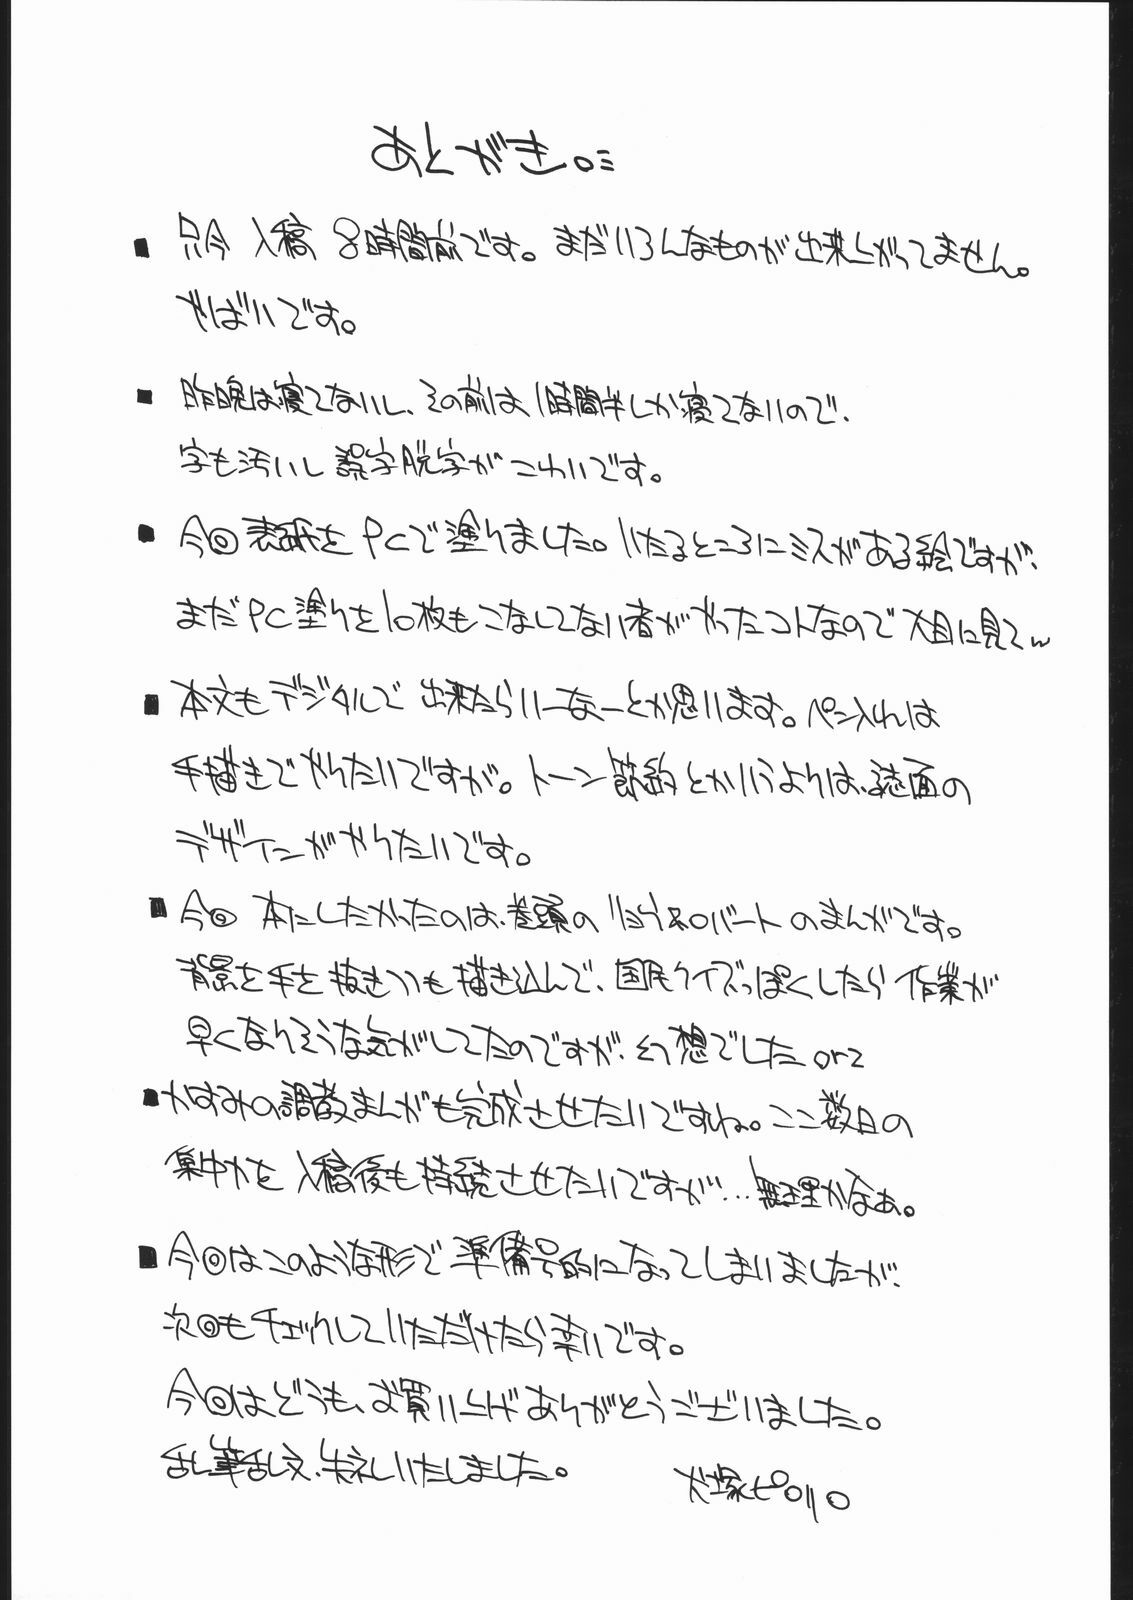 あとがき。
■ 只今 入稿 8時間前です。まだいろんなものが出来上がってません。
やばいです。
■ 昨晩は寝てないし、その前は1時間半しか寝てないので、
字も汚いし 誤字脱字が こわいです。
■ 今回 表紙を PCで塗りました。いたるところにミスがある絵ですが、
まだPC塗りを10枚もこなしてない者がやったコトなので大目に見てw
■ 本文もデジタルで 出来たらいーなーとか思います。ペン入れは
手描きでやりたいですが。トーン節約とかいうよりは、誌面の
デザインがやりたいです。
■ 今回 本にしたかったのは、巻頭の リョウ&ロバート のまんがです。
背景を手を抜きつつも描き込んで、国民クイズっぽくしたら 作業が
早くなりそうな気がしてたのですが、幻想でした orz
■ かすみの調教まんがも完成させたいですね。ここ数日の
集中力を 入稿後も持続させたいですが…無理かなあ。
■ 今回はこのような形で 準備号的になってしまいましたが、
次回もチェックしていただけたら幸いです。
今回はどうも、お買い上げありがとうございました。
乱筆乱文、失礼いたしました。 犬塚ピロリロ